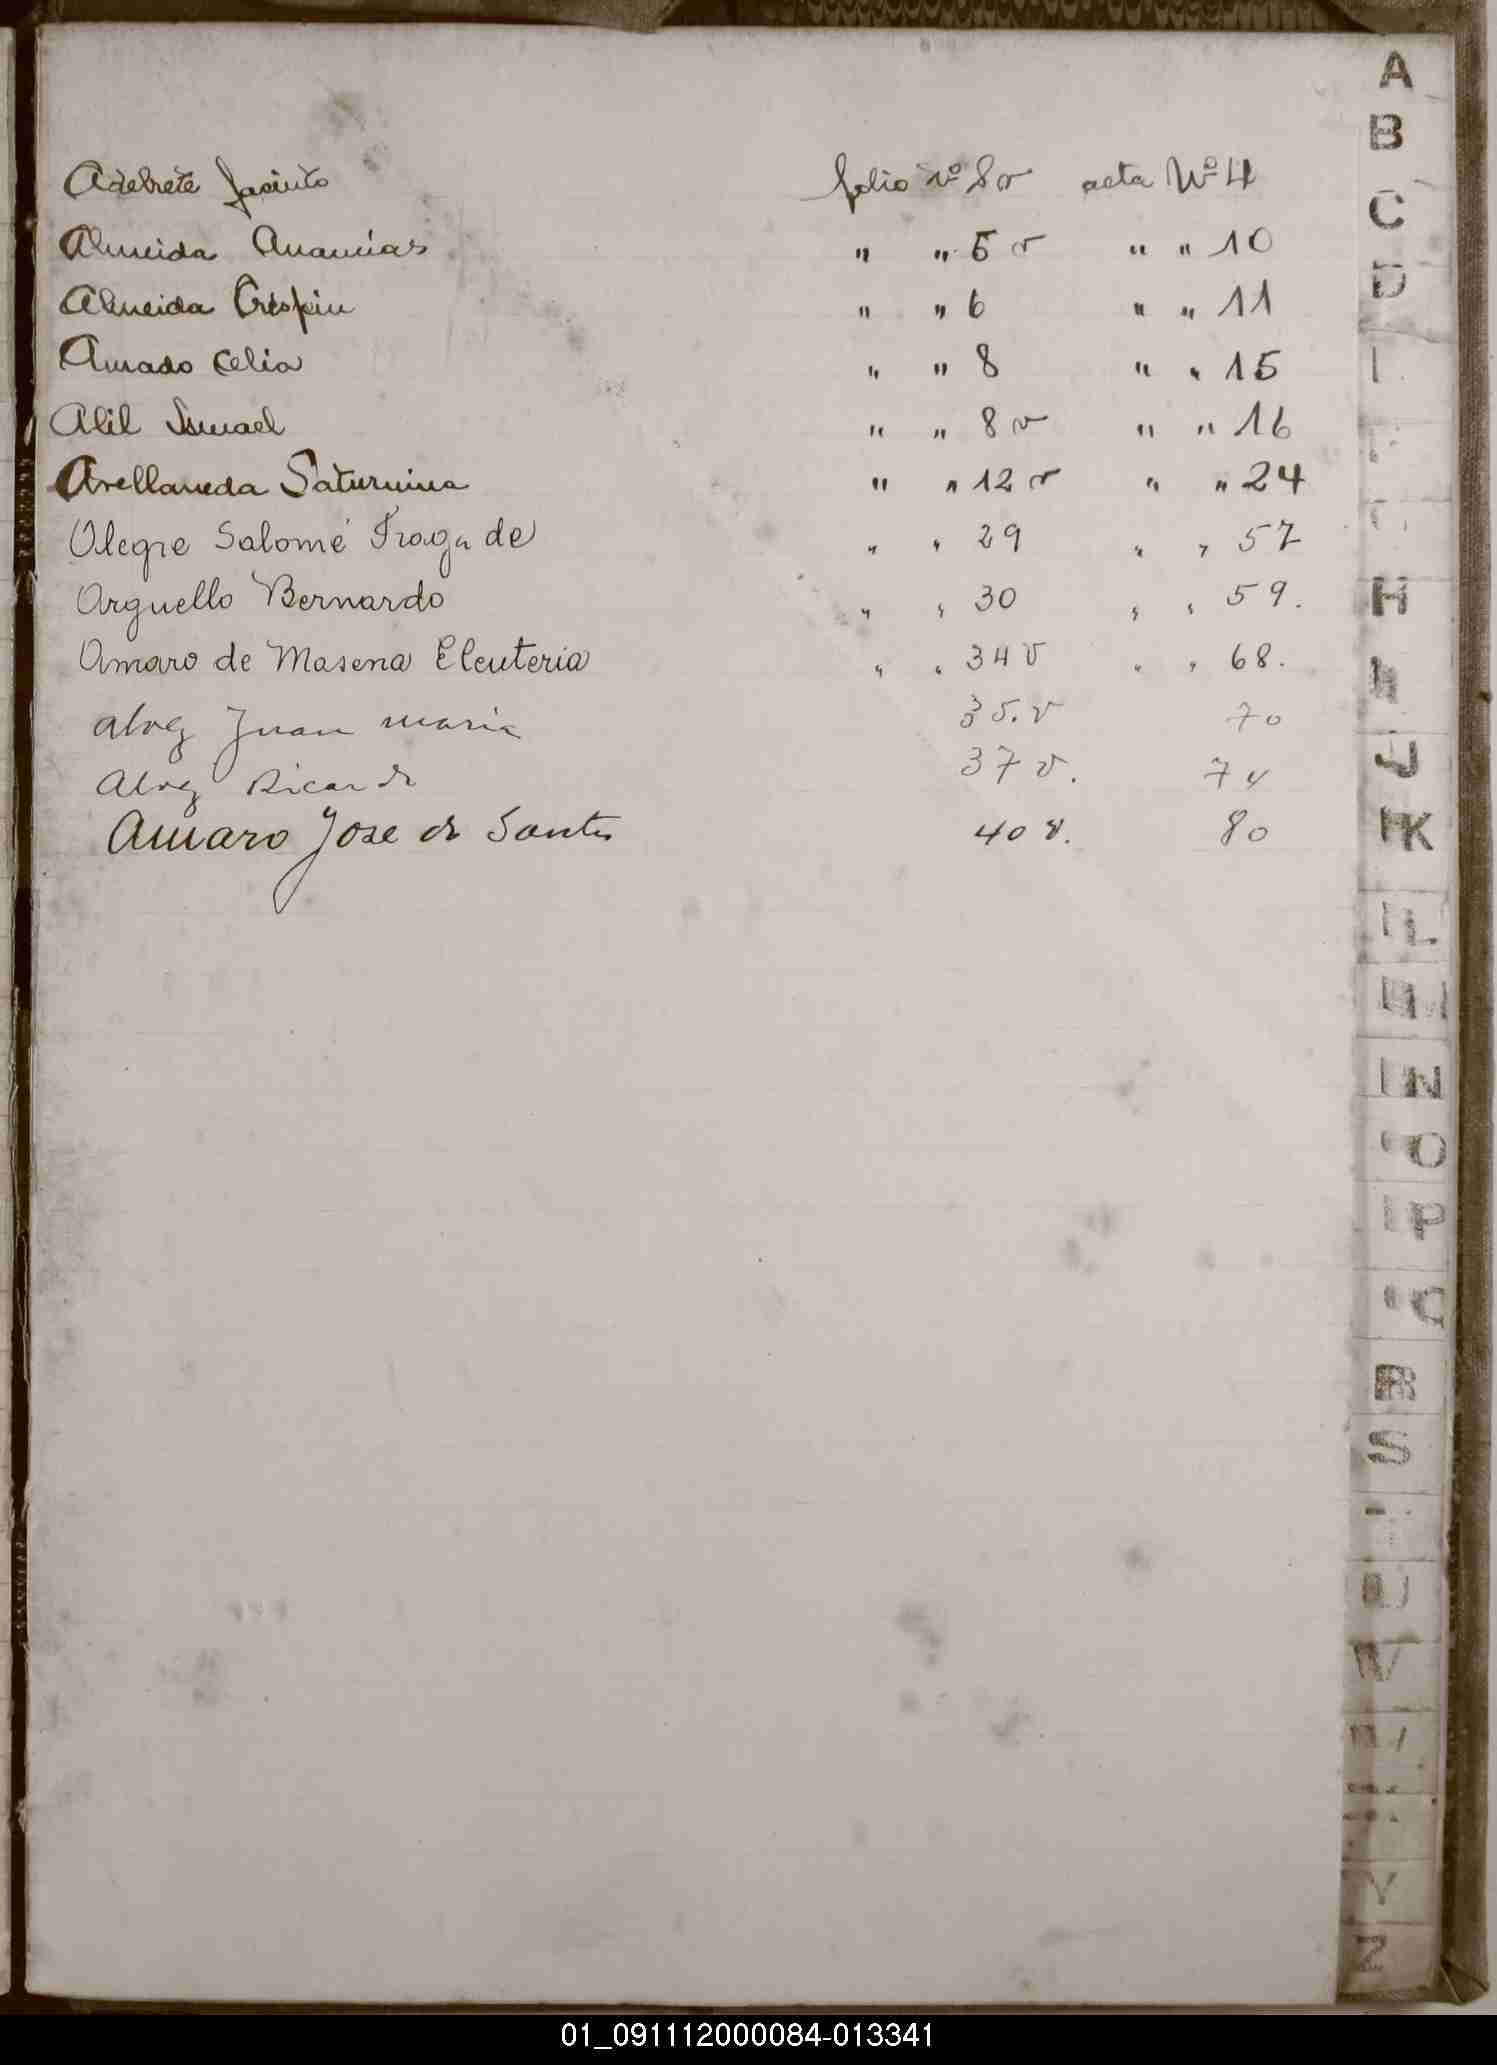 Adebrete Jacinto folio nº 8v acta Nº 4
Almeida Ananías " " 5v " " 10
Almeida Crespin " " 6 " " 11
Amado Celia " " 8 " " 15
Alil Ismael " " 8v " " 16
Avellaneda Saturnina " " 12v " " 24
Alegre Salomé Fraga de " " 29 " " 57
Arguello Bernardo " " 30 " " 59.
Amaro de Masena Eleuteria " " 34v " " 68.
Alvez Juan maria 35.v 70
Alvez Ricardo 37v. 74
Amaro Jose de Santos 40v. 80
A
B
C
D
H
J
K
L
N
O
P
R
S
U
V
Y
Z
01_091112000084-013341